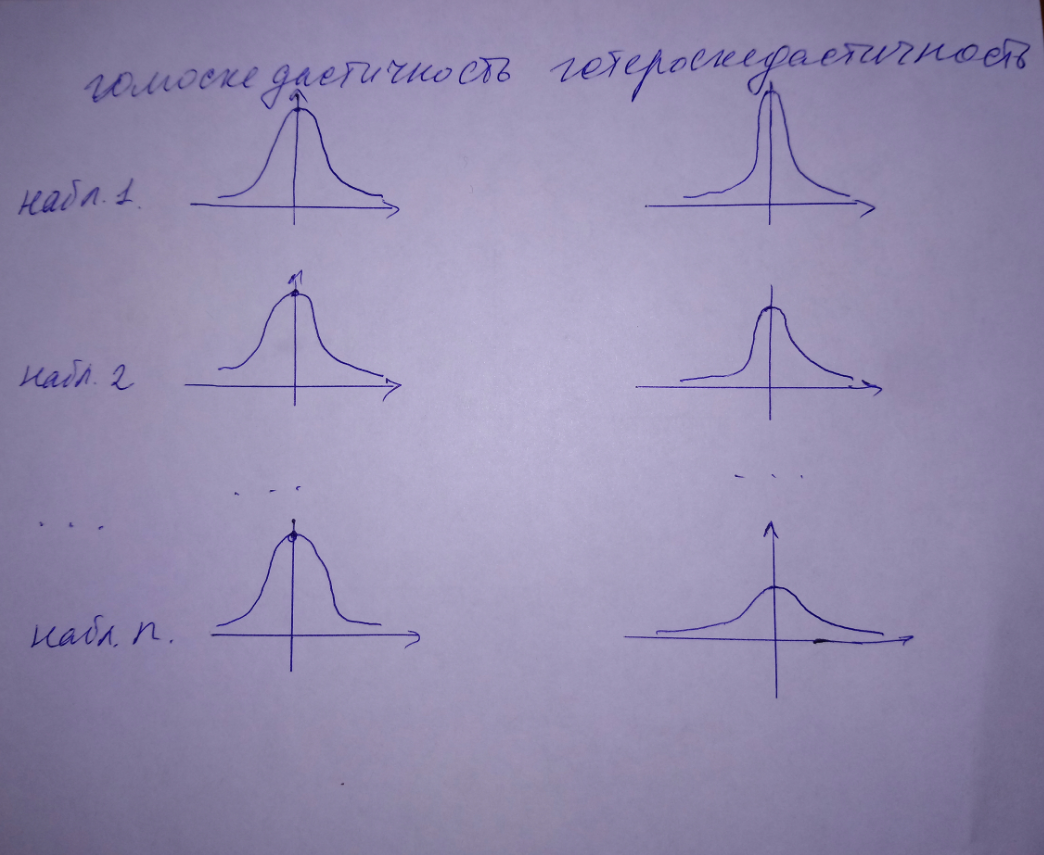 гомоскедастичность готероскедастичность
набл. 1.
набл. 2
...
...
...
набл. n.